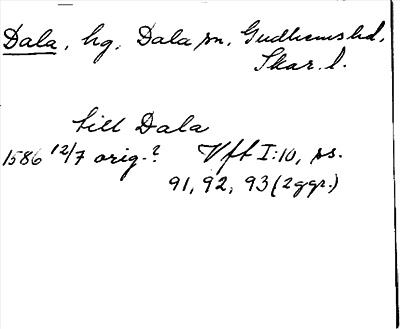 Dala, hg, Dala sn, Gudhems hd,
Skar. l.
till Dala
1586 12/7 orig.? Vft I:10, ss.
91, 92, 93 (2 ggr.)